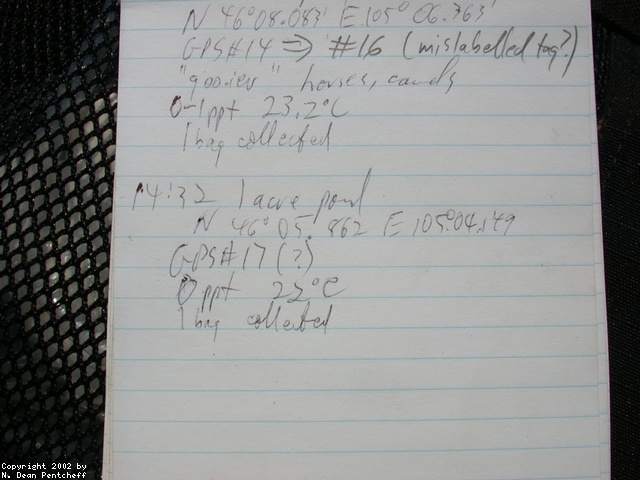 N 46°08.083' E 105° 06.363'
GPS#14 ⇒ #16 (mislabelled tag?)
"gooier" horses, cows
0-1ppt 23.2°C
1 bag collected
14:32 1 acre pond
N 46° 05.862 E 105°04.149
GPS#17 (?)
0ppt 22°C
1 bag collected
Copyright 2002 by
N. Dean Pentcheff